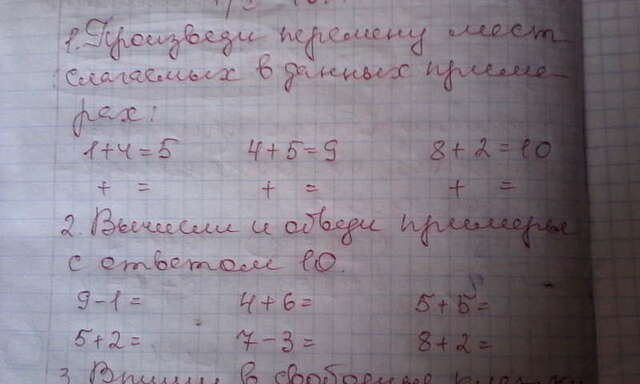 1. Произведи перемену мест
слагаемых в данных приме-
рах:
1+4=5 4+5=9 8+2=10
+ = + = + =
2. Вычисли и обведи примеры
с ответом 10.
9-1= 4+6= 5+5=
5+2= 7-3= 8+2=
3. Впиши в свободные